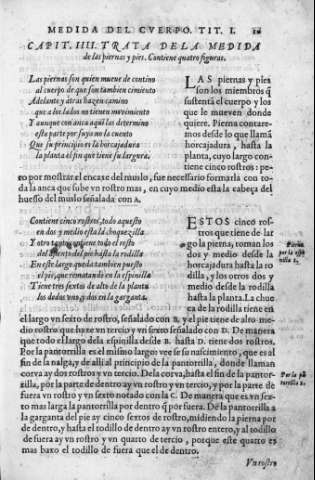 MEDIDA DEL CVERPO. TIT. I.
CAPIT. IIII. TRATA DE LA MEDIDA
de las piernas y pies. Contiene quatro figuras.
Las piernas son quien mueue de contino
al cuerpo de que son tambien cimiento
Adelante y atras hazen camino
que a los lados no tienen mouimiento
Y aunque con anca aqui las determino
esta parte por suya no la cuento
Que su principio es la horcajadura
la planta el fin que tiene su largura.
LAS piernas y pies
son los miembros q̃
sustentã el cuerpo y los
que le mueven donde
quiere. Pierna contare-
mos desde lo que llamã
horcajadura, hasta la
planta, cuyo largo con-
tiene cinco rostros: pe-
ro por mostrar el encaxe del muslo, fue necessario formarla con to-
da la anca que sube vn rostro mas, en cuyo medio esta la cabeça del
huesso del muslo señalada con A.
Contiene cinco rostros, todo aquesto
en dos y medio està la choquezilla
Y otro tanto tiene todo el resto
del assiento del pie hasta la rodilla
En este largo queda tambien puesto
el pie, que rematando en la espinilla
Tiene tres sextos de alto de la planta
los dedos vno, y dos en la garganta.
ESTOS cinco ros-
tros que tiene de lar
go la pierna, toman los
dos y medio desde la
horcajadura hasta la ro
dilla, y los otros dos y
medio desde la rodilla
hasta la planta. La chue
ca de la rodilla tiene en
el largo vn sexto de rostro, señalado con B. y el pie tiene de alto me-
dio rostro que haze vn tercio y vn sexto señalado con D. De manera
que todo el largo dela espinilla desde B. hasta D. tiene dos rostros.
Por la pantorrilla es el mismo largo: vee se su nascimiento, que es al
fin de la nalga, y de alli al principio de la pantorrilla, donde llaman
corva ay dos rostros y vn tercio. Dela corva, hasta el fin de la pantor-
rilla, por la parte de dentro ay vn rostro y vn tercio, y por la parte de
fuera vn rostro y vn sexto notado con la C. De manera que es vn sex-
to mas larga la pantorrilla por dentro q̃ por fuera. De la pantorrilla a
la garganta del pie ay cinco sextos de rostro, midiendo la pierna por
de dentro, y hasta el todillo de dentro ay vn rostro entero, y al todillo
de fuera ay vn rostro y vn quarto de tercio, porque este quarto es
mas baxo el todillo de fuera que el de dentro.
Vn rostro